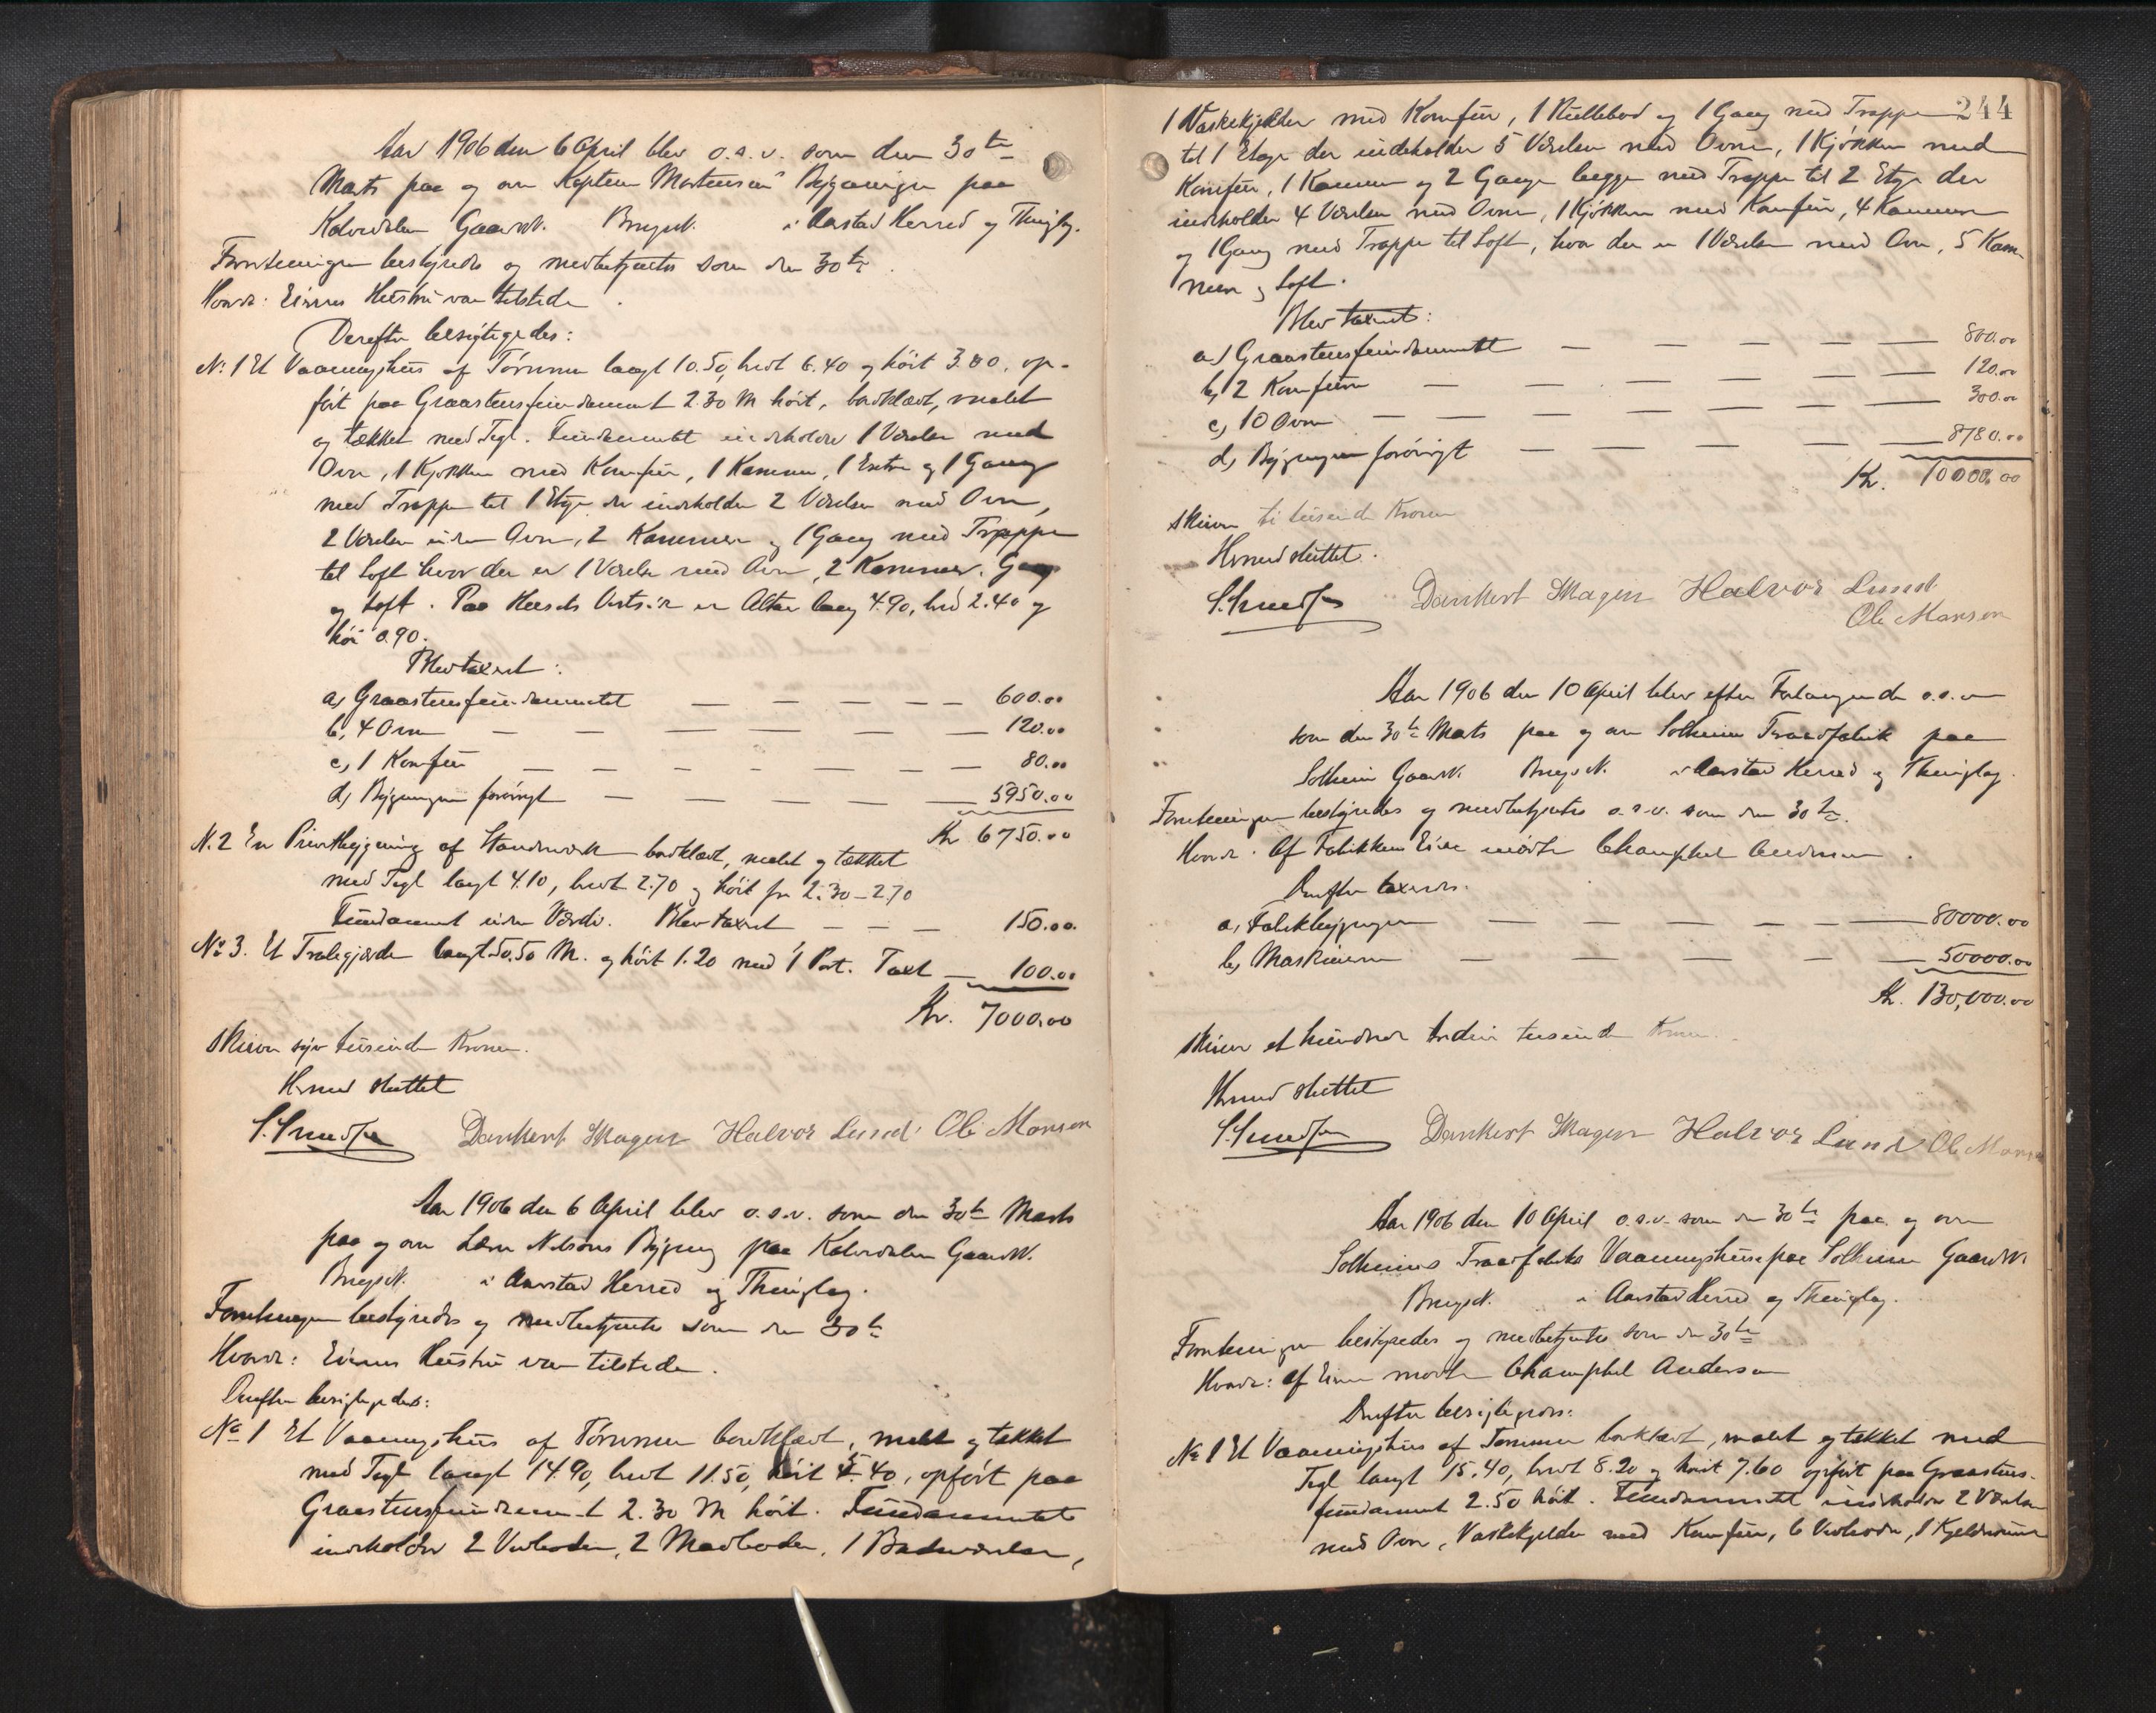 Aar 1906 den 6 April blev o.s.v. som den 30te
Marts paa og om Kaptein Mortensens Bygninger paa
Kalvedalen Gaardsn. Brugsn. i Aarstad Herred og Thinglag.
Forretningen bestyredes og medbetjentes som den 30te.
Hvorda: Eierens Hustru var tilstede.
Derefter besigtigedes:
No 1 Et Vaaningshus af Tømmer langt 10.50, bredt 6.40 og høit 3.80, op-
ført paa Graastensfundament 2.30 M høit, bordklædt, malet
og tækket med Tegl. Fundamentet indeholder 1 Værelse med
Ovn, 1 Kjøkken med Komfur, 1 Kammer, 1 Entre og 1 Gang
med Trappe til 1 Etage der indeholder 2 Værelser med Ovn,
2 Værelser uden Ovn, 2 Kammer og 1 Gang med Trappe
til Loft hvor der er 1 Værelse med Ovn, 2 Kammer, Gang
og Loft. Paa Husets Vestside er Altan lang 4.90, bred 2.40 og
høi 0.90.
Blev taxeret:
a, Graastensfundamentet — — — — — 600.00
b, 4 Ovne — — — — — — — 120.00
c, 1 Komfur — — — — — — — 80.00
d, Bygningen forøvrigt — — — — — 5950.00
Kr 6750.00
N. 2 En Privetbygning af Standværk bordklædt, malet og tækket
med Tegl langt 4.10, bredt 2.70 og høit fra 2.30–2.70
Fundament uden Værdi. Blev taxeret — — — 150.00
No 3. Et Trælegjærde langt 50.50 M. og høit 1.20 med 1 Port. Taxt — 100.00
Kr. 7000.00
skriver syv tusinde Kroner.
Hermed sluttet
S. Smedsen Dankert Skagen Halvor Lund Ole Monsen
Aar 1906 den 6 April blev o.s.v. som den 30te Marts
paa og om Lærer Nilsens Bygning paa Kalvedalen Gaardsn.
Brugsn. i Aarstad Herred og Thinglag.
Forretningen bestyredes og medbetjentes som den 30te
Hvorda: Eierens Hustru var tilstede.
Derefter besigtigedes:
No 1 Et Vaaningshus af Tømmer bordklædt, malet og tækket
med Tegl langt 14.90, bredt 11.50, høit 5.40, opført paa
Graastensfundament 2.30 M høit. Fundamentet
indeholder 2 Vedboder, 2 Madboder, 1 Badeværelse,
244
1 Vaskekjelder med Komfur, 1 Rullebod og 1 Gang med Trappe
til 1 Etage der indeholder 5 Værelser med Ovne, 1 Kjøkken med
Komfur, 1 Kammer og 2 Gange begge med Trappe til 2 Etage der
indeholder 4 Værelser med Ovne, 1 Kjøkken med Komfur, 4 Kammere
og 1 Gang med Trappe til Loft, hvor der er 1 Værelse med Ovn, 5 Kam-
mere og Loft.
Blev taxeret:
a, Graastensfundamentet — — — — — 800.00
b, 2 Komfurer — — — — — — 120.00
c, 10 Ovne — — — — — — — 300.00
d, Bygningen forøvrigt — — — — — 8780.00
Kr. 10000.00
skriver ti tusinde Kroner
Hermed sluttet.
S. Smedsen Dankert Skagen Halvor Lund
Ole Monsen
Aar 1906 den 10 April blev efter Forlangende o.s.v
som den 30te Marts paa og om Solheim Traadfabrik paa
Solheim Gaardsn. Brugsn. i Aarstad Herred og Thinglag.
Forretningen bestyredes og medbetjentes o.s.v. som den 30te.
Hvorda. Af Fabrikkens Eiere mødte Champhel Andersen.
Derefter taxeredes.
a, Fabrikbygningen — — — — — — 80000.00
b, Maskinerne — — — — — 50000.00
Kr. 130,000.00
skriver et hundrede tredive tusinde Kroner.
Hermed sluttet
S. Smedsen Dankert Skagen Halvor Lund Ole Monsen
Aar 1906 den 10 April o.s.v. som den 30te paa og om
Solheims Traadfabriks Vaaningshuse paa Solheim Gaardsn.
Brugsn. i Aarstad Herred og Thinglag.
Forretningen bestyredes og medbetjentes som den 30te
Hvorda: af Eierne mødte Champhel Andersen
Derefter besigtigedes:
No 1 Et Vaaningshus af Tømmer bordklædt, malet og tækket med
Tegl langt 15.40, bredt 8.20 og høit 7.60 opført paa Graastens-
fundament 2.50 høit. Fundamentet indeholder 2 Værelser
med Ovn, Vaskekjelder med Komfur, 6 Vedboder, 1 Kjelderrum